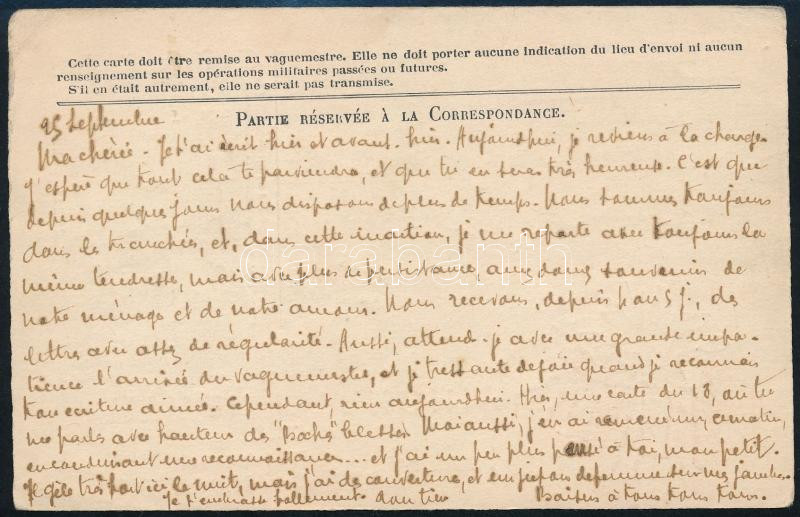 Cette carte doit être remise au vaguemestre. Elle ne doit porter aucune indication du lieu d'envoi ni aucun
renseignement sur les opérations militaires passées ou futures.
S'il en était autrement, elle ne serait pas transmise.
25 Septembre
PARTIE RÉSERVÉE À LA CORRESPONDANCE.
Ma chérie - Je t'ai écrit hier et avant-hier. Aujourd'hui, je reviens à la charge.
J'espère que tout cela te parviendra, et que tu en seras très heureuse. C'est que
depuis quelques jours nous disposons de plus de temps. Nous sommes toujours
dans les tranchées, et, dans cette inaction, je me reporte avec toujours la
même tendresse, mais avec plus de persistance, aux doux souvenirs de
notre ménage et de notre amour. Nous recevons, depuis 4 ou 5 j., des
lettres avec assez de régularité. Aussi, attends-je avec une grande impa-
tience l'arrivée du vaguemestre, et je tressaute de joie quand je reconnais
ton écriture aimée. Cependant, rien aujourd'hui. Hier, une carte du 13, où tu
me parles avec hauteur des "Boches" blessés. Moi aussi, j'en ai ramené un, ce matin,
en conduisant une reconnaissance... et j'ai un peu plus pensé à toi, mon petit.
Je gèle très fort ici la nuit, mais j'ai des couvertures, et un jupon de femme sur mes jambes.
Je t'embrasse follement. Ton tien Baisers à tous tous tous.
darabanth